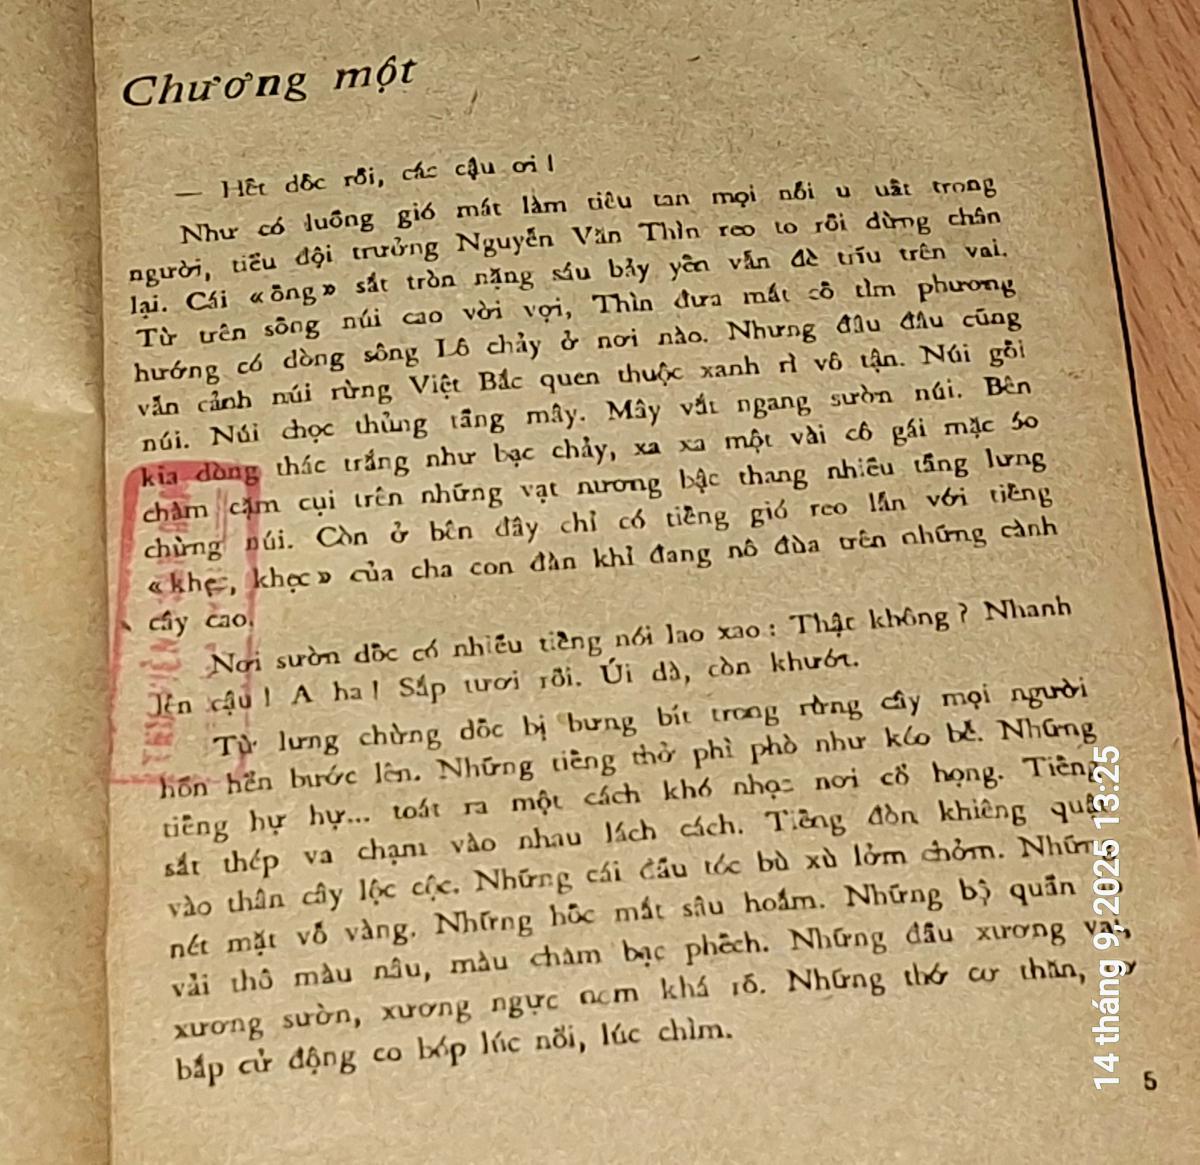 Chương một
— Hết dốc rồi, các cậu ơi !
Như có luồng gió mát làm tiêu tan mọi nỗi u uất trong
người, tiểu đội trưởng Nguyễn Văn Thìn reo to rồi dừng chân
lại. Cái « ống » sắt tròn nặng sáu bảy yến vẫn đè trĩu trên vai.
Từ trên sống núi cao vời vợi, Thìn đưa mắt cố tìm phương
hướng có dòng sông Lô chảy ở nơi nào. Nhưng đâu đâu cũng
vẫn cảnh núi rừng Việt Bắc quen thuộc xanh rì vô tận. Núi gối
núi. Núi chọc thủng tầng mây. Mây vắt ngang sườn núi. Bên
kia dòng thác trắng như bạc chảy, xa xa một vài cô gái mặc áo
chàm cặm cụi trên những vạt nương bậc thang nhiều tầng lưng
chừng núi. Còn ở bên đây chỉ có tiếng gió reo lẫn với tiếng
« khẹc, khẹc » của cha con đàn khỉ đang nô đùa trên những cành
cây cao.
Nơi sườn dốc có nhiều tiếng nói lao xao : Thật không ? Nhanh
lên cậu ! A ha ! Sắp tươi rồi. Úi dà, còn khướt.
Từ lưng chừng dốc bị bưng bít trong rừng cây mọi người
hổn hển bước lên. Những tiếng thở phì phò như kéo bễ. Những
tiếng hự hự... toát ra một cách khó nhọc nơi cổ họng. Tiếng
sắt thép va chạm vào nhau lách cách. Tiếng đòn khiêng quật
vào thân cây lộc cộc. Những cái đầu tóc bù xù lởm chởm. Những
nét mặt võ vàng. Những hốc mắt sâu hoắm. Những bộ quần
vải thô màu nâu, màu chàm bạc phếch. Những đầu xương vai,
xương sườn, xương ngực nom khá rõ. Những thớ cơ thăn,
bắp cử động co bóp lúc nổi, lúc chìm.
5
14 tháng 9, 2025 13:25